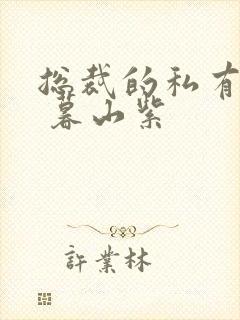 总裁的私有
暮山紫
許業林